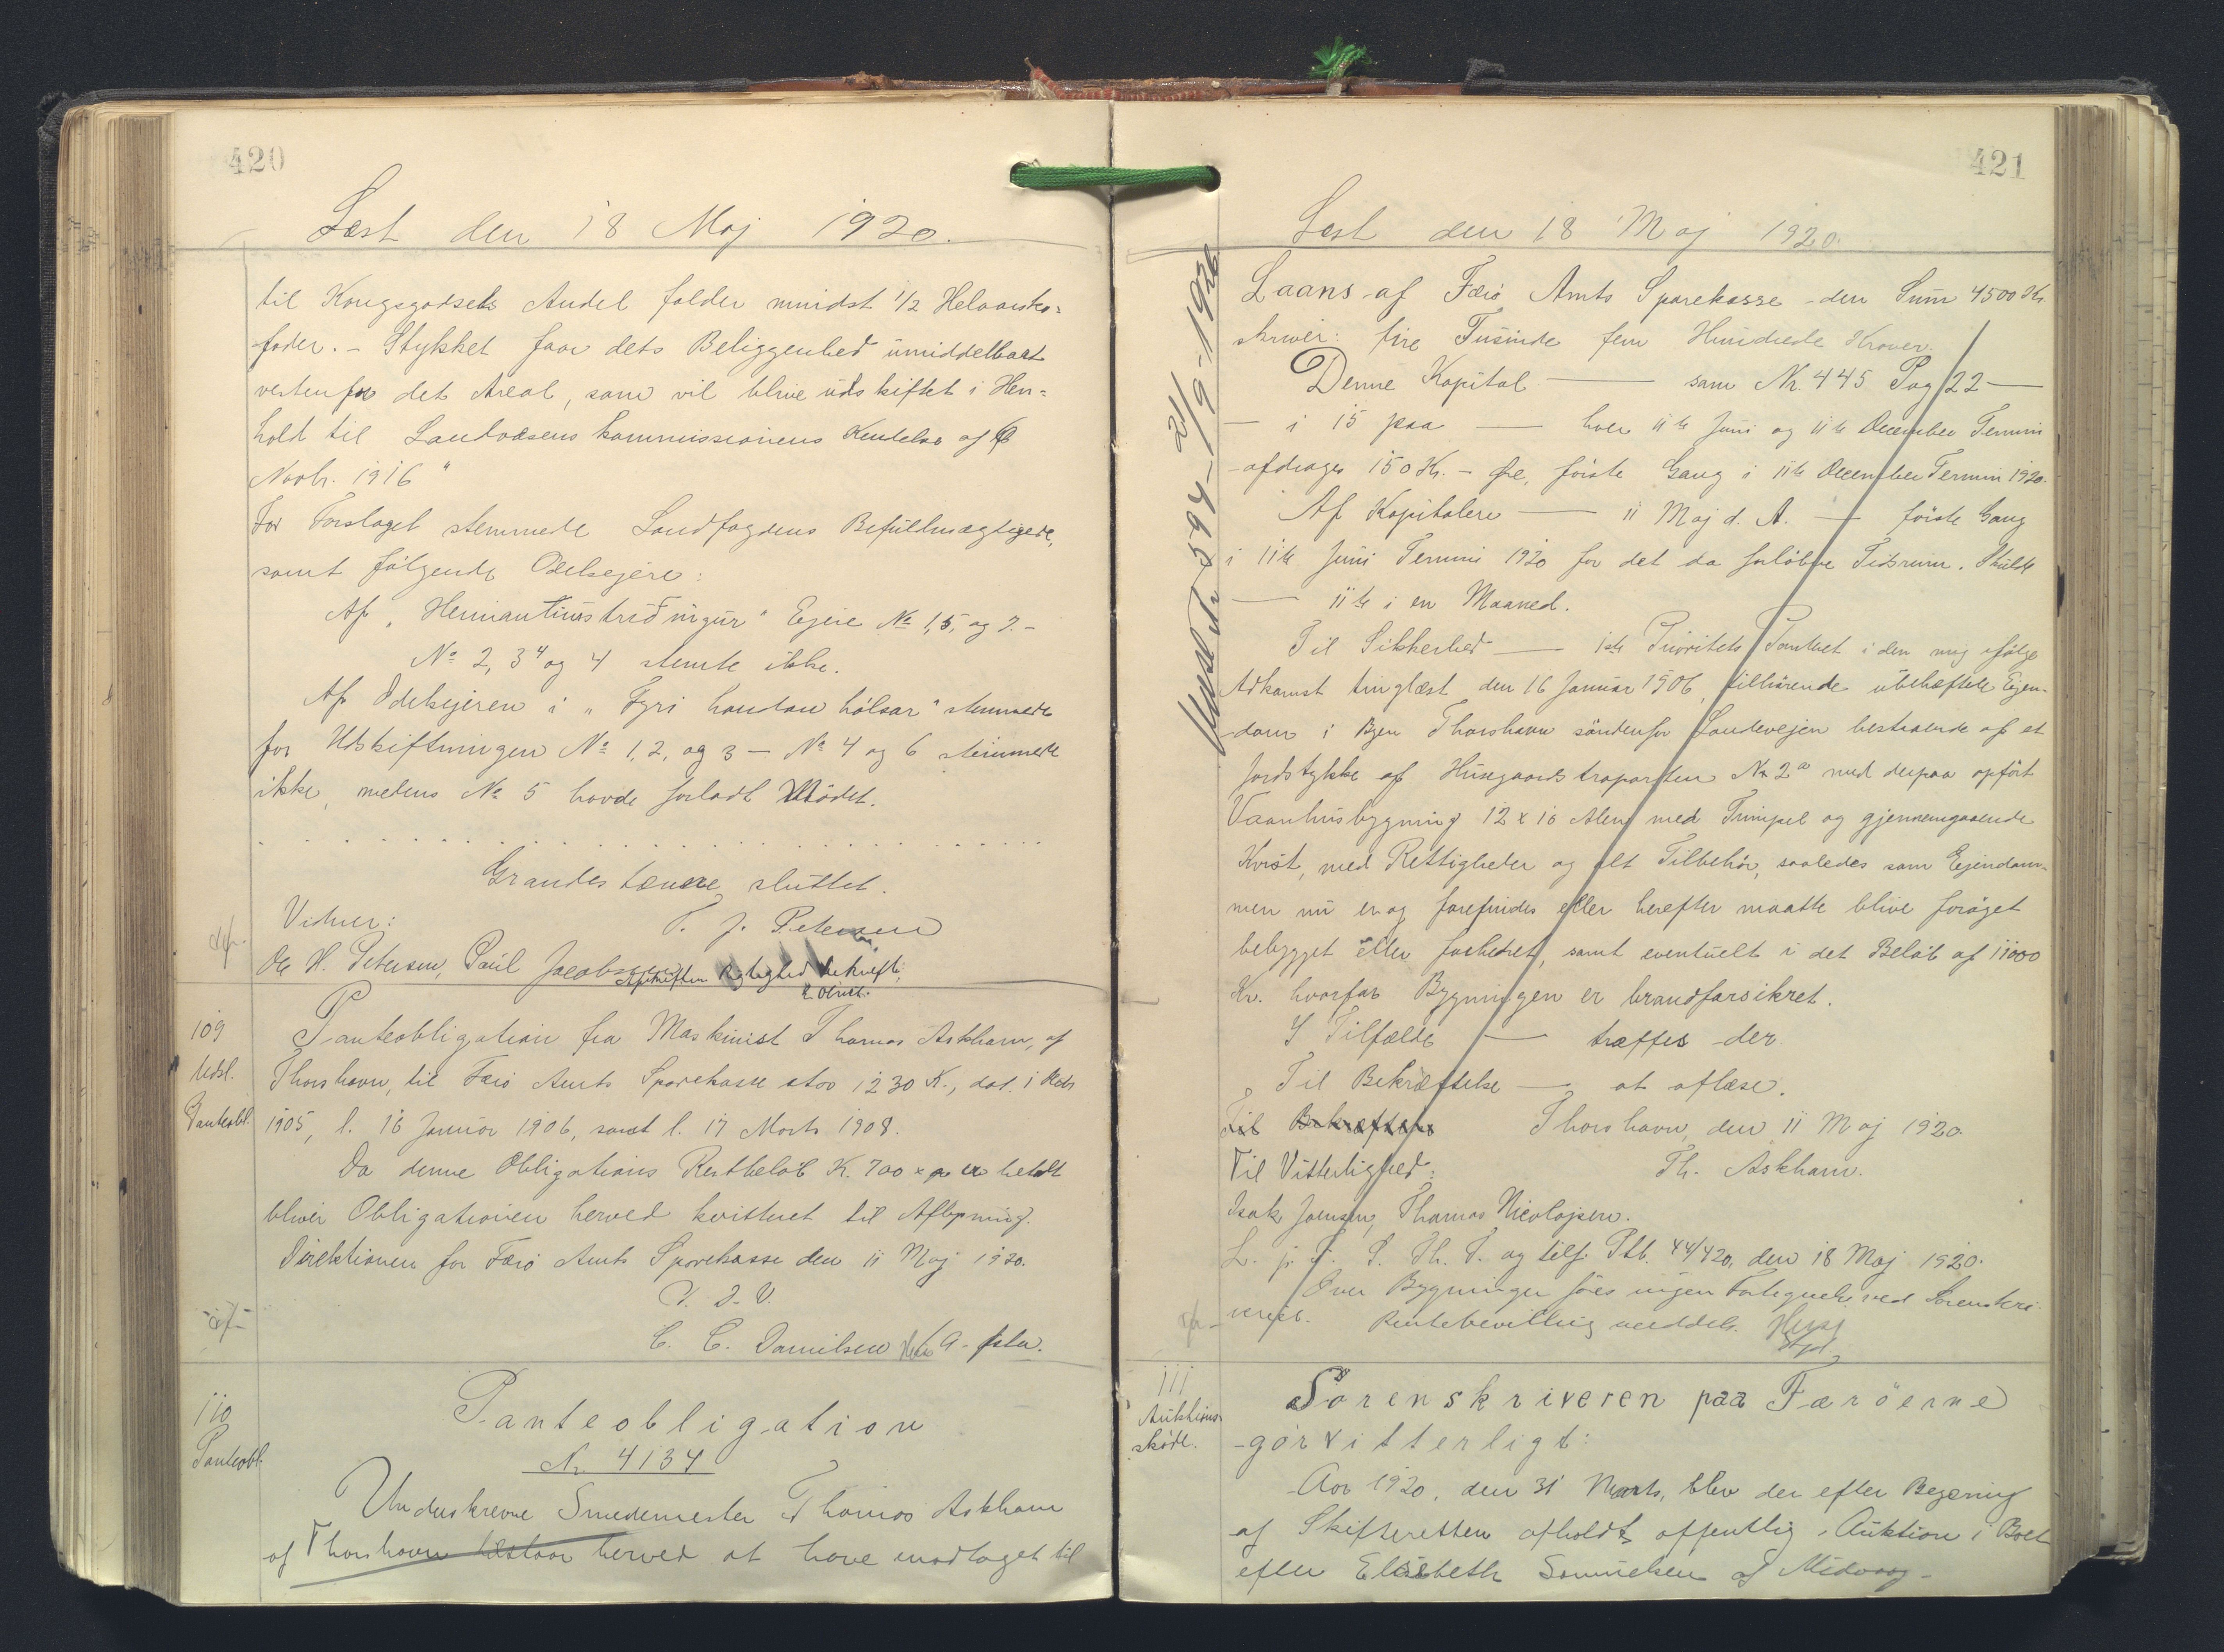 420
Læst den 18 Maj 1920.
til Kongsgodsets Andel falder mindst 1/2 Helaars=
foder. – Stykket faar dets Beliggenhed umiddelbart
vestenfor det Areal, som vil blive udskiftet i Hen=
hold til Landvæsenskommissionens Kendelse af
Novbr. 1916"
For Forslaget stemmede Landfogdens Befuldmægtigede,
samt følgende Odelsejere:
Af " Ejere No 1, 5, og 7. –
No 2, 3 og 4 stemte ikke.
Af Odelsejeren i " Fyri handan hálsar" stemmede
for Udskiftningen No 1, 2, og 3 – No 4 og 6 stemmede
ikke, medens No 5 havde forladt Mödet.
Grandestævne sluttet.
Vidner: T. J. Petersen
H. Petersen, Paul Jacobsen Afskriftens Rigtighed bekræft.
109
Udsl.
Panteobl.
Panteobligation fra Maskinist Thomas Askham, af
Thorshavn, til Færö Amts Sparekasse stor 1230 K., dat. 1 Decbr
1905, l. 16 Januar 1906, samt l. 17 Marts 1908.
Da denne Obligations Restbelöb K. 700 er betalt
bliver Obligationen herved kvitteret til Aflysning.
Direktionen for Færö Amts Sparekasse den 11 Maj 1920.
P. D. V.
C. C. Danielsen
110
Panteobl.
Panteobligation
Nr. 4134
Underskrevne Smedemester Thomas Askham
af Thorshavn tilstaar herved at have modtaget til
421
Læst den 18 Maj 1920.
Laans af Færö Amts Sparekasse den Sum 4500 Kr.
skriver: fire Tusinde fem Hundrede Kroner.
Denne Kapital — som Nr. 445 Pag 22 —
— i 15 paa — hver 11te Juni og 11te December Termin
afdrages 150 Kr. – Øre, förste Gang i 11te December Termin 1920.
Af Kapitalen — 11 Maj d. A. — förste Gang
i 11te Juni Termin 1920 for det da forløbne Tidsrum. Skulde
— 11te i en Maaned.
Til Sikkerhed — 1ste Prioritets Panteret i den mig ifölge
Adkomst tinglæst den 16 Januar 1906, tilhörende ubehæftede Ejen-
dom i Byen Thorshavn söndenfor Landevejen bestaaende af et
Jordstykke af Husegaardstraparten Nr 2a med derpaa opfört
Vaanhusbygning 12 x 16 Alen med Trimpel og gjennemgaaende
Kvist, med Rettigheder og alt Tilbehör, saaledes som Ejendom-
men nu er og forefindes eller herefter maatte blive foröget
bebygget eller forbedret, samt eventuelt i det Belöb af 11000
Kr. hvorfor Bygningen er brandforsikret.
I Tilfælde — træffes der
Til Bekræftelse — at aflæse.
Til Bekræftelse Thorshavn, den 11 Maj 1920.
Til Vitterlighed: Th. Askham.
Isak Joensen, Thomas Nicolajsen.
L. p. F. S. Th. T. og tilf. Ptb. 44/420, den 18 Maj 1920.
Over Bygninger föres ingen Fortegnelse ved Sorenskri-
veriet. Rentebevilling meddelt.
Udslettet Nr 594 – 21/9 – 1926
111
Auktions
skøde.
Sorenskriveren paa Færöerne
gör vitterligt:
Aar 1920, den 31 Marts, blev der efter Begæring
af Skifteretten afholdt offentlig Auktion i Boet
efter Elisbeth Samuelsen af Midvaag –